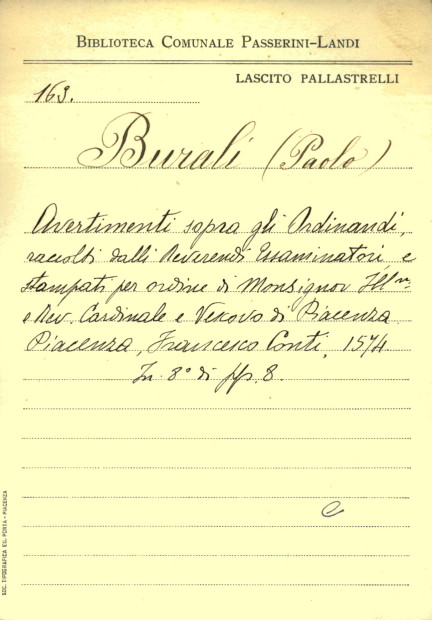 BIBLIOTECA COMUNALE PASSERINI-LANDI
LASCITO PALLASTRELLI
163.
Burali (Paolo)
Avertimenti sopra gli Ordinandi,
raccolti dalli Reverendi Essaminatori, e
stampati per ordine di Monsignor Ill.mo
e Rev. Cardinale e Vescovo di Piacenza.
Piacenza, Francesco Conti, 1574
In 8° di pp. 8.
e
SOC. TIPOGRAFICA ED. PORTA - PIACENZA